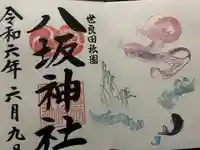 世良田祇園
八坂神社
令和六年六月九日